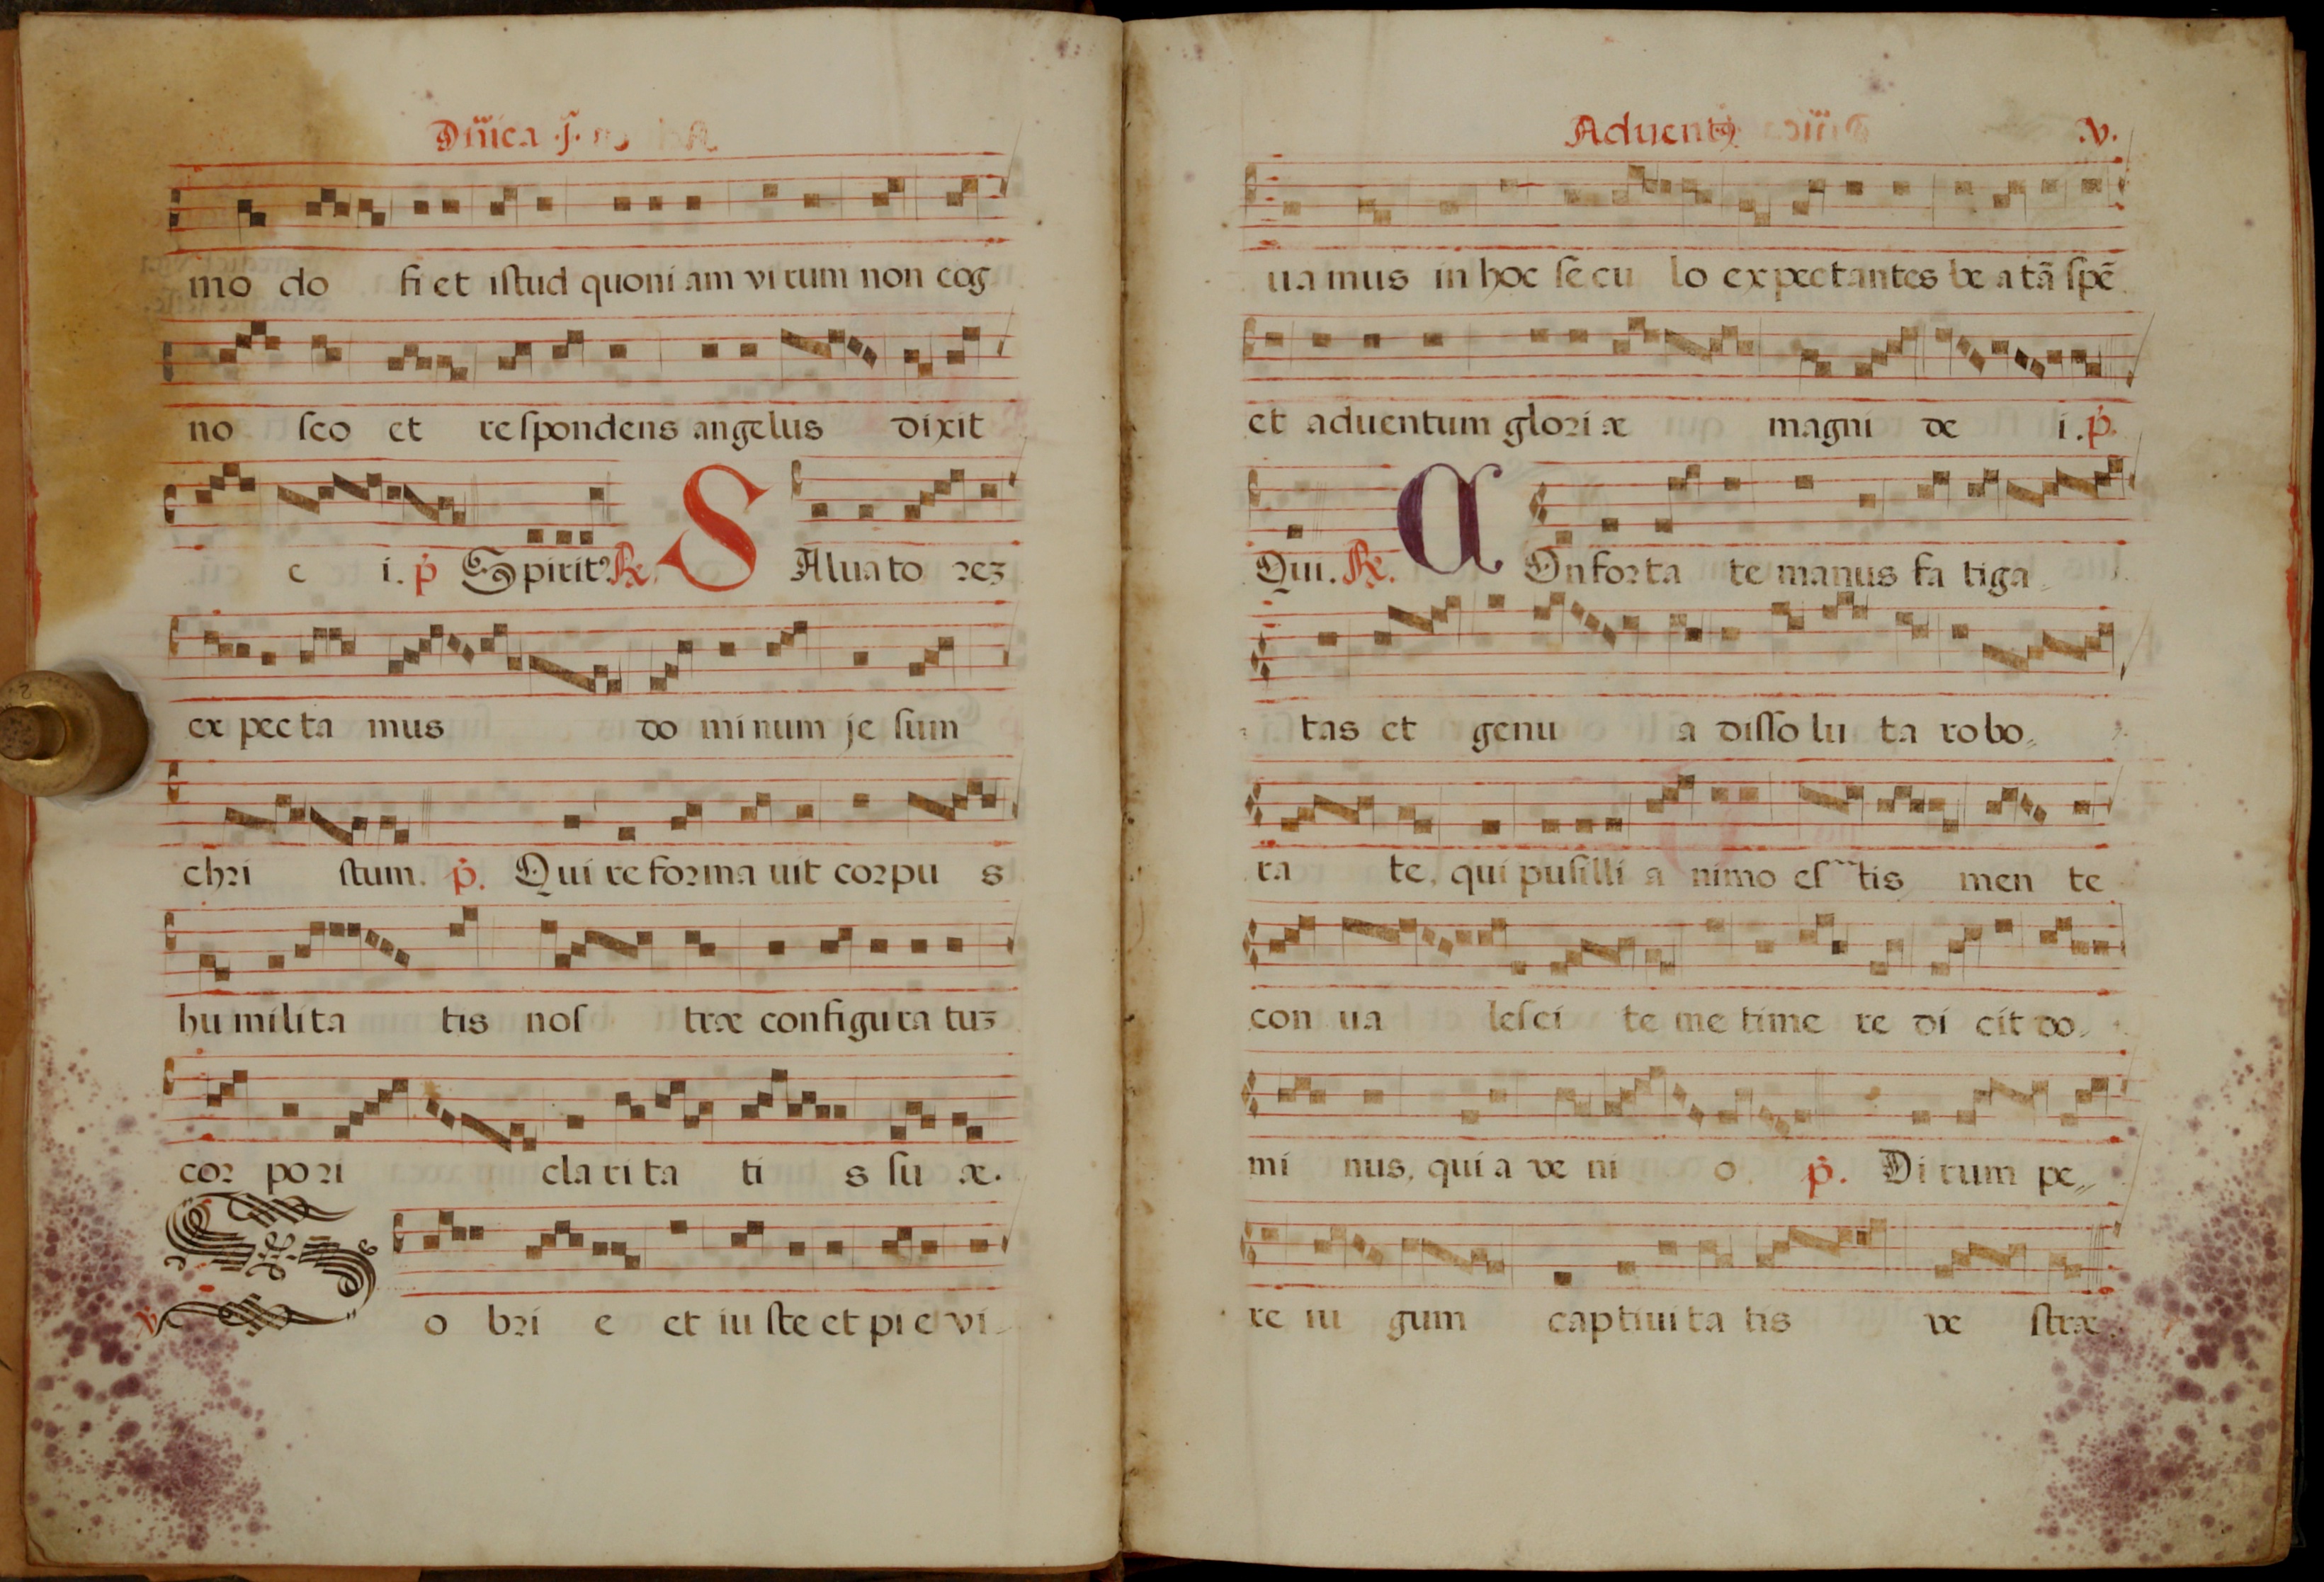 Dñica .j.
mo do fi et iſtud quoni am vi rum non cog
no ſco et reſpondens angelus dixit
e i. p̄ Spirit⁹ ℟. S Aluato rez
ex pecta mus do minum je ſum
chri ſtum. p̄. Qui reforma uit corpu s
humilita tis noſ træ configura tuz
cor pori clarita ti s ſu æ.
S o bri e et iu ſte et pi e vi
Aduent⁹ .v.
uamus in hoc ſecu lo expectantes be a tã ſpẽ
et aduentum glori æ magni de i. p̄.
Qui. ℟. C Onforta te manus fa tiga
tas et genu a diſſo lu ta robo
ra te, qui puſilli a nimo eſ tis men te
con ua leſci te me time re di cit do
mi nus, quia ve ni o p̄. Di rum pe
re iu gum captiuita tis ve ſtræ